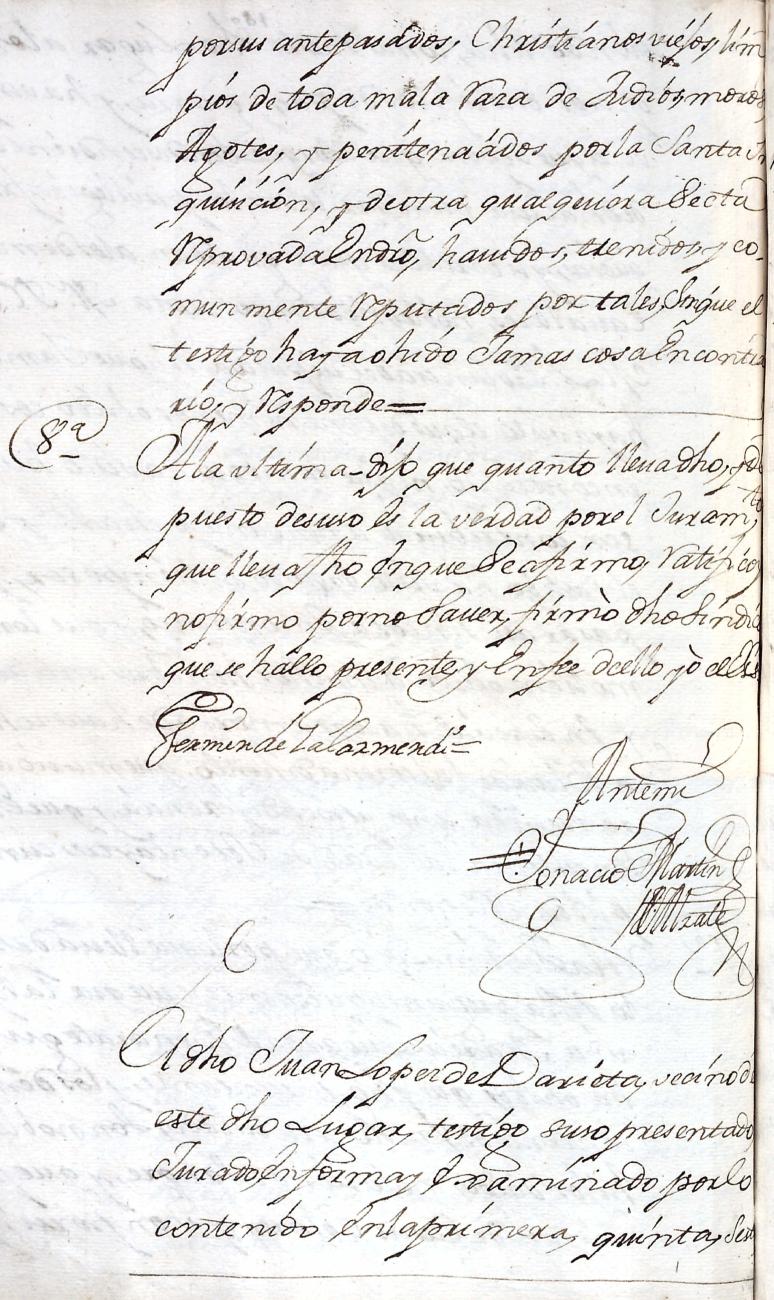 por sus antepasados, Christianos viejos, lim
pios de toda mala Raza de Judios, moros,
Agotes, y penitenciados por la Santa In
quisicion, y de otra qualquiera Secta
Reprovada En dro, havidos, thenidos, y co-
munmente Reputados por tales, sin que el
testigo haya ohido Jamas cosa En contra
rio, y Responde=
8ª
A la ultima dijo que quanto lleva dho, y de
puesto de suso es la verdad por el Juramto
que lleva fho En que Se afirmo, Ratifico,
no firmo por no Saver, firmò dho Sindico
que se hallo presente, y En fee de ello yo el Ess
Fermin de Galarmendi=
Ante mi
Ignacio Martin
de Alzate
El dho Juan Lopez de Darieta, vecino de
este dho Lugar, testigo suso presentado
Jurado, En forma y Examinado por lo
contenido En la primera, quinta, Sest